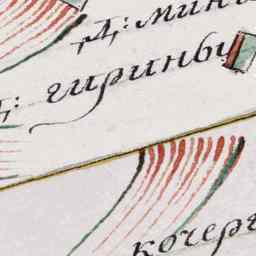 Д: мин
Д: гиринбу
кочер